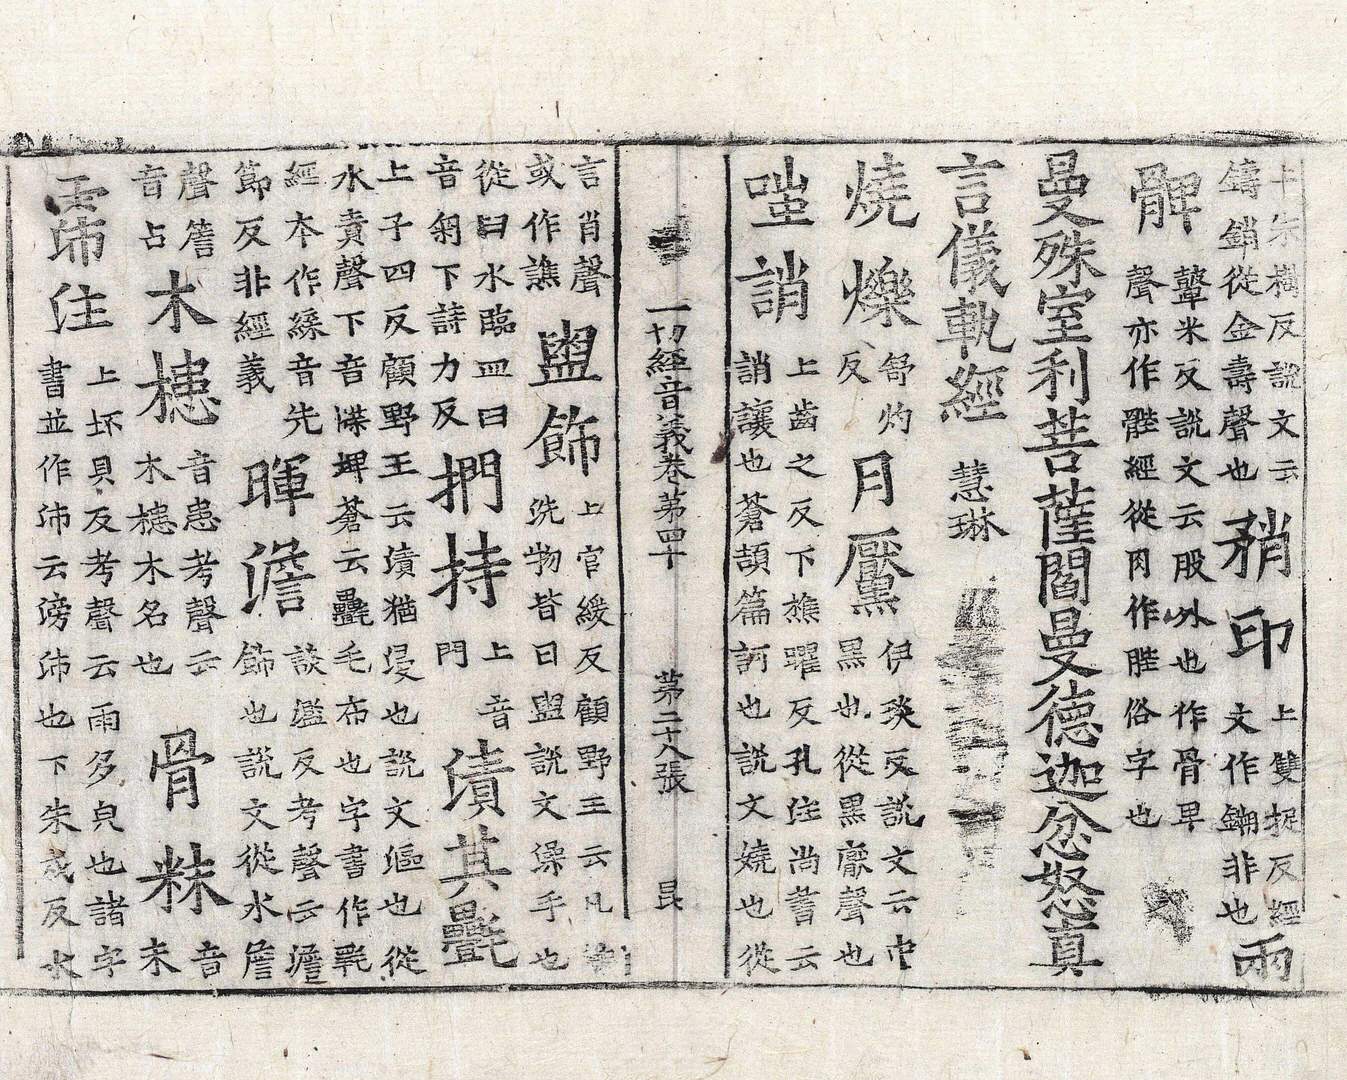 上朱樹反說文云
鑄銷從金壽聲也
矟印
上雙捉反經
文作鎙非也
兩
髀
鞞米反說文云股外也作骨卑
聲亦作䯗經從肉作䏶俗字也
曼殊室利菩薩閻曼德迦忿怒真
言儀軌經 慧琳
燒爍
舒灼
反
月黶
伊琰反說文云中
黑也從黑厭聲也
嗤誚
上齒之反下樵曜反孔注尚書云
誚讓也蒼頡篇訶也說文嬈也從
一切經音義卷第四十 第二十八張 昆
言肖聲
或作譙
盥飾
上官緩反顧野王云凡
洗物皆曰盥說文澡手也
從臼水臨皿曰
音匊下詩力反
捫持
上音
門
漬其氎
上子四反顧野王云漬猶浸也說文漚也從
水責聲下音牒埤蒼云氎毛布也字書作㲲
經本作緤音先
節反非經義
暉澹
談濫反考聲云澹
飾也說文從水詹
聲簷
音占
木槵
音患考聲云
木槵木名也
骨粖
音
末
霈注
上坏貝反考聲云雨多皃也諸字
書並作沛云滂沛也下朱戍反水